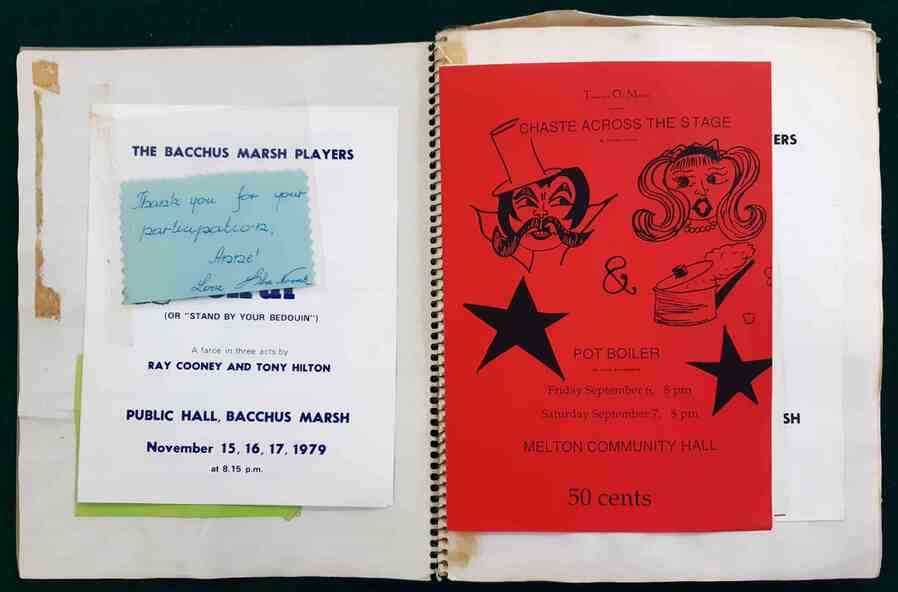 THE BACCHUS MARSH PLAYERS
Thank you for your
participation,
Anne!
Love
(OR "STAND BY YOUR BEDOUIN")
A farce in three acts by
RAY COONEY AND TONY HILTON
PUBLIC HALL, BACCHUS MARSH
November 15, 16, 17, 1979
at 8.15 p.m.
CHASTE ACROSS THE STAGE
&
POT BOILER
Friday September 6, 8 pm
Saturday September 7, 8 pm
MELTON COMMUNITY HALL
50 cents
ERS
SH